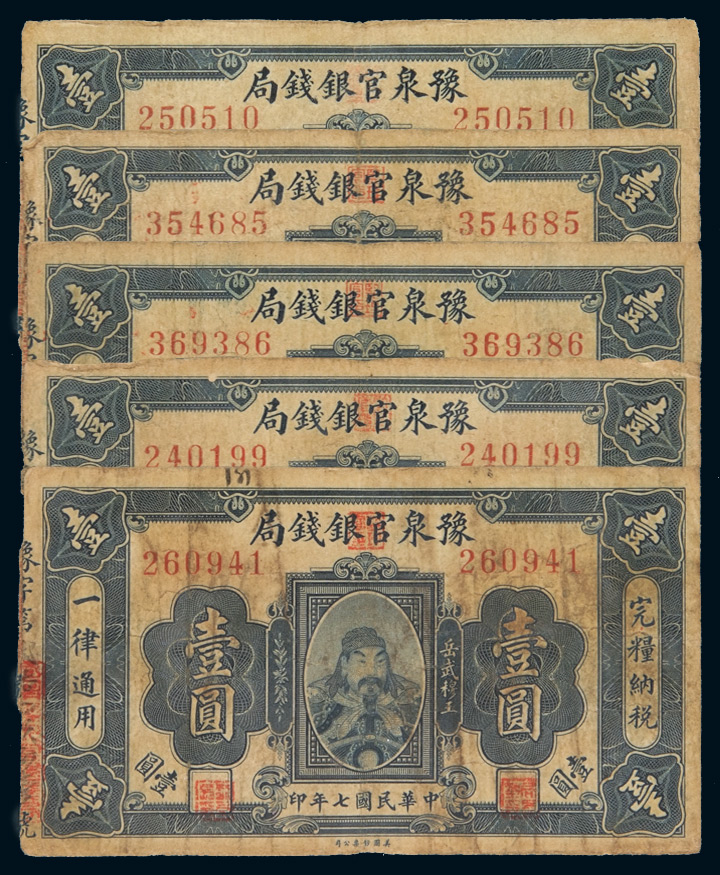 豫泉官銀錢局
250510 250510
壹 壹
豫泉官銀錢局
354685 354685
壹 壹
豫泉官銀錢局
369386 369386
壹 壹
豫泉官銀錢局
240199 240199
壹 壹
豫泉官銀錢局
260941 260941
壹 壹
完糧納稅
壹圓
岳武穆王
壹圓
一律通用
壹圓
壹圓
中華民國七年印
壹 壹